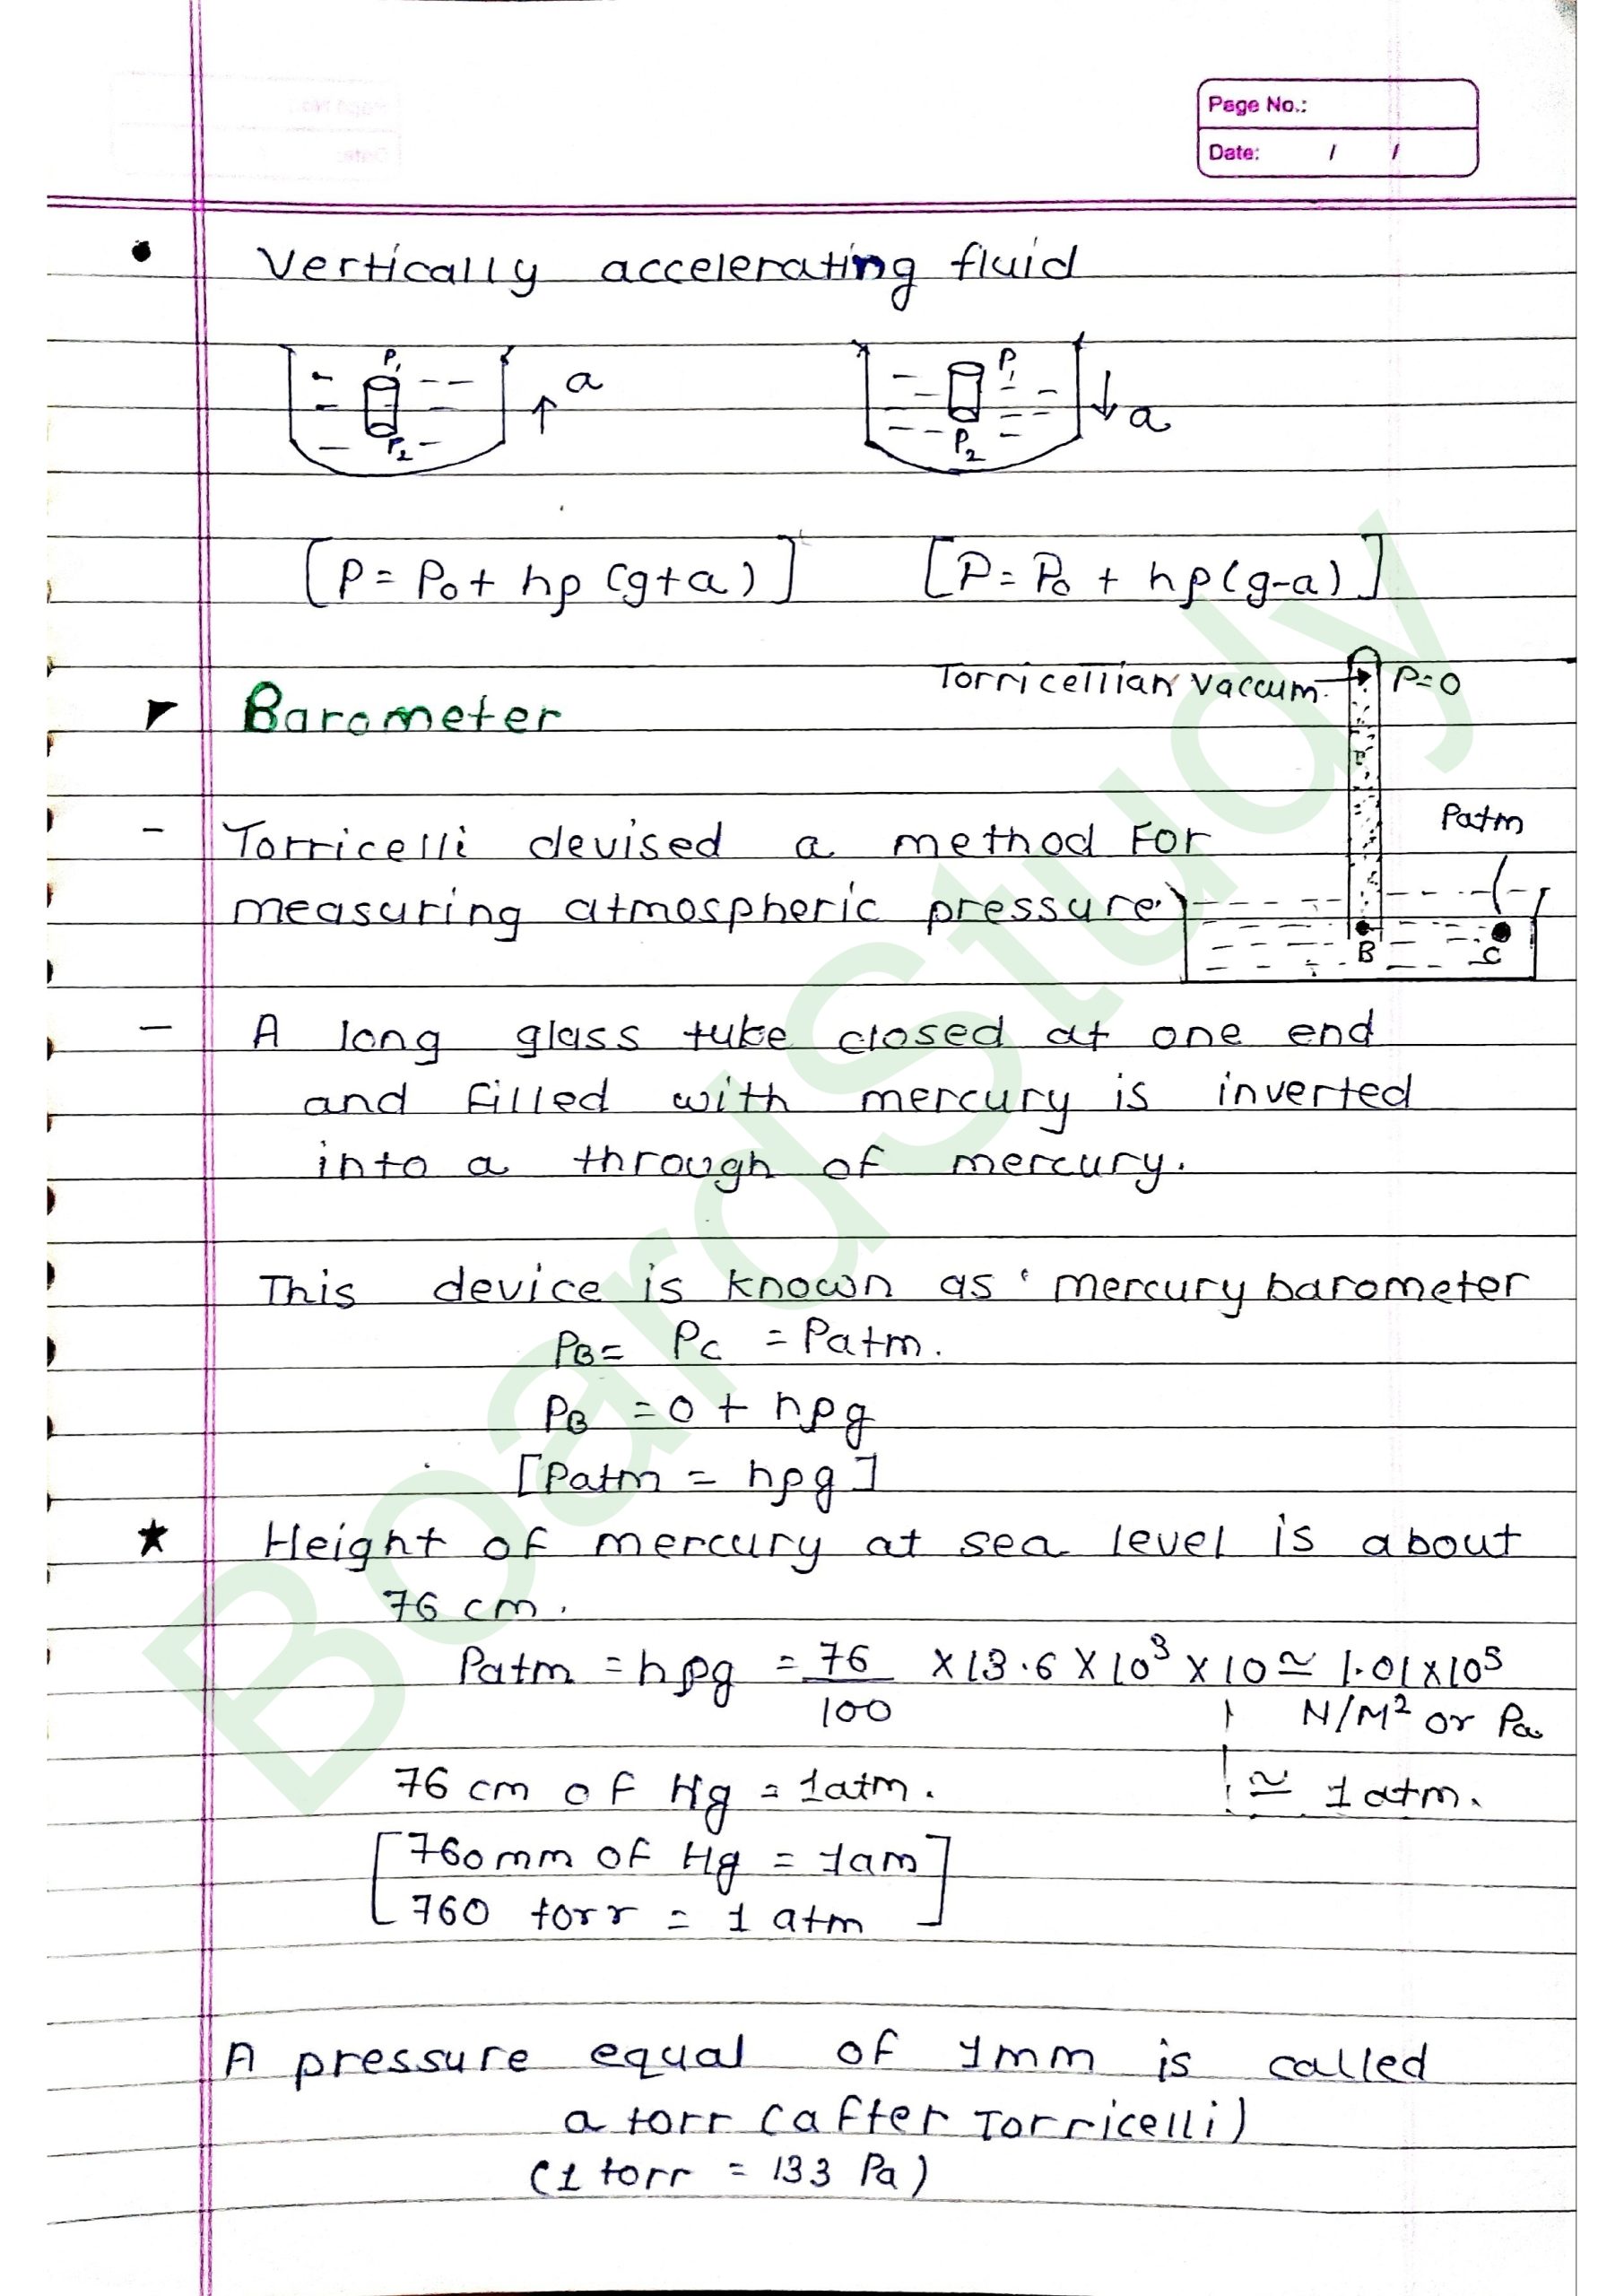 Page No.:
Date: / /
• Vertically accelerating fluid
P₁ a P₁
P₂ P₂ a
[P = P₀ + hρ (g+a)] [P = P₀ + hρ(g-a)]
Torricellian vaccum. P=0
Barometer
Patm
- Torricelli devised a method For
measuring atmospheric pressure.
B C
- A long glass tube closed at one end
and filled with mercury is inverted
into a through of mercury.
This device is known as ' mercury barometer
PB = PC = Patm.
PB = 0 + hρg
[Patm = hρg]
★ Height of mercury at sea level is about
76 cm.
Patm = hρg = 76/100 × 13.6 × 10³ × 10 ≃ 1.01×10⁵
N/M² or Pa
76 cm of Hg = 1atm. ≃ 1 atm.
[760mm of Hg = 1am
760 torr = 1 atm]
A pressure equal of 1mm is called
a torr (after Torricelli)
(1 torr = 133 Pa)
BoardStudy